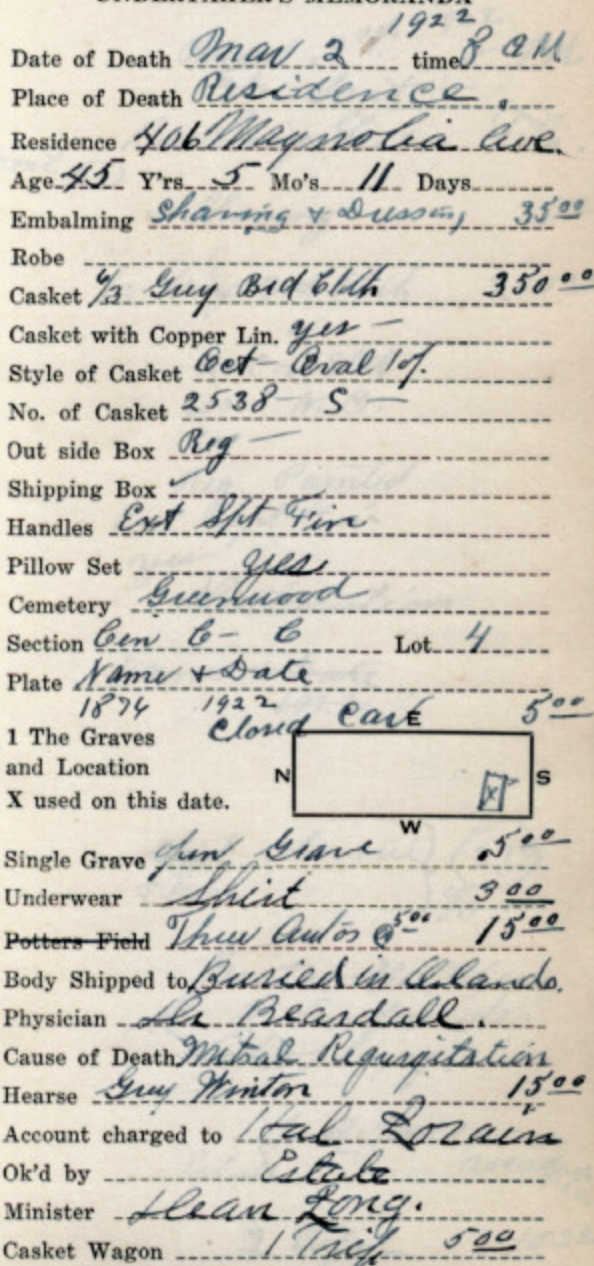 UNDERTAKER'S MEMORANDA
1922
Date of Death Mar 2 time 8 AM
Place of Death Residence.
Residence 406 Magnolia Ave.
Age 45 Y'rs 5 Mo's 11 Days
Embalming Shaving & Dressing 35 00
Robe
Casket 6/3 Grey Brd Clth 350 00
Casket with Copper Lin. yes -
Style of Casket Oct - Oval
No. of Casket 2538 - S -
Out side Box Reg -
Shipping Box ✓
Handles Ext Spt
Pillow Set yes
Cemetery Greenwood
Section C - C Lot 4
Plate Name & Date
1874 1922
Closed 5 00
1 The Graves
and Location
X used on this date.
E
N X S
W
Single Grave open Grave 5 00
Underwear Shirt 3 00
Potters Field Three Autos @ 5 00 15 00
Body Shipped to Buried in Orlando.
Physician Dr Beardall.
Cause of Death Mitral Regurgitation
Hearse Grey Winton 15 00
Account charged to Hal
Ok'd by Estate
Minister Dean Long.
Casket Wagon 1 Trip 5 00